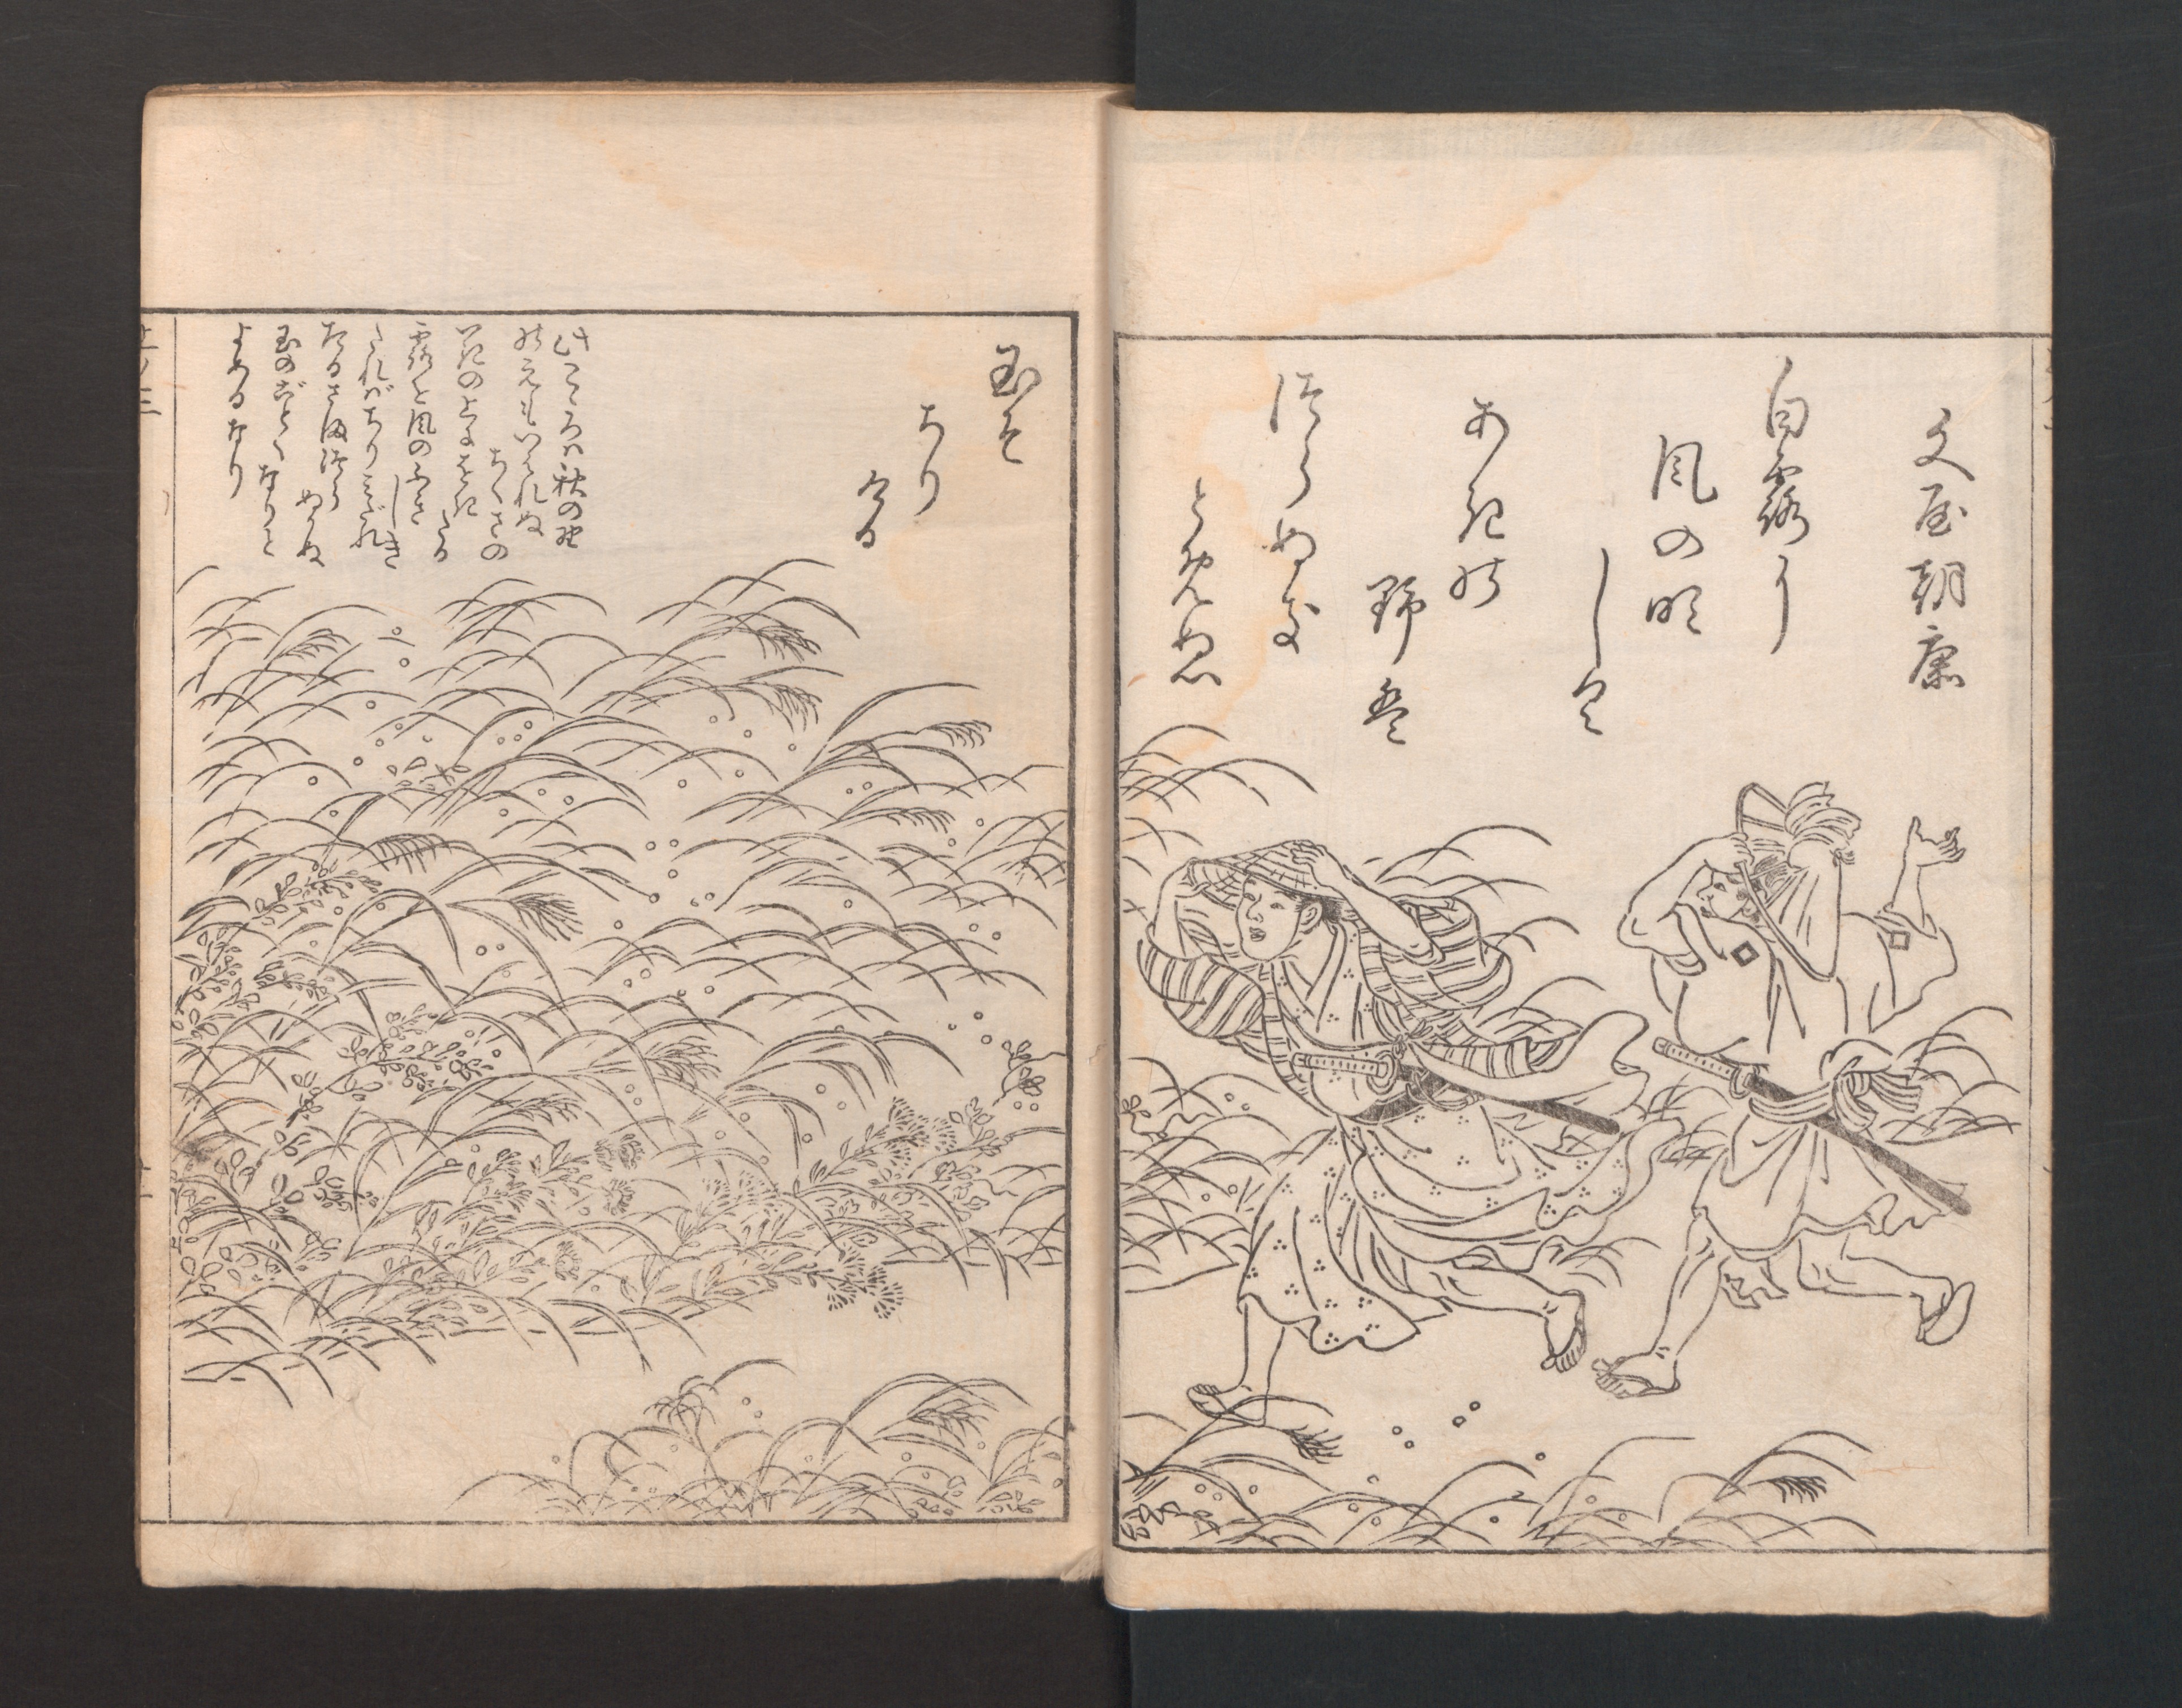 文屋朝康
白露に
風の吹
しく
あきの
野は
つらぬき
とめぬ
玉そ
ちり
ける
此こゝろハ秋の野
のえもいはれぬ
ちくさの
花の上にをきたる
露を風のふき
しき
たれバちりみだれ
たるさまつら
ぬかぬ
玉のごとく
なりと
よめるなり